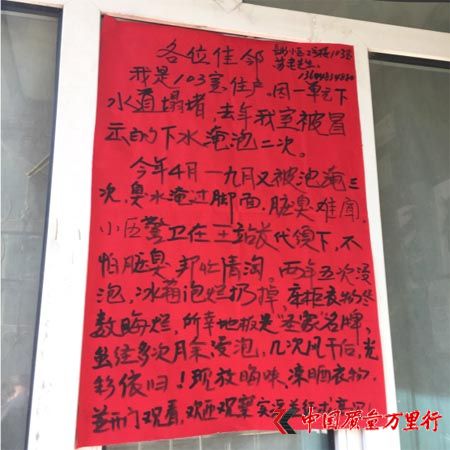 各位佳邻
我是103室住户。因一单元下
水道塌堵，去年我室被冒
示的下水淹泡二次。
今年4月一九月又被泡淹三
次，臭水淹过脚面，脏臭难闻，
小区警卫在王站长代领下，不
怕脏臭帮忙清淘。两年五次浸
泡，冰箱泡烂扔掉，
数晦烂，所幸地板是“圣象名牌，
虽经多次月余浸泡，几次风干后，光
彩依旧！现放晦味，凉晒衣物，
并开门观看，欢迎观
中国质量万里行